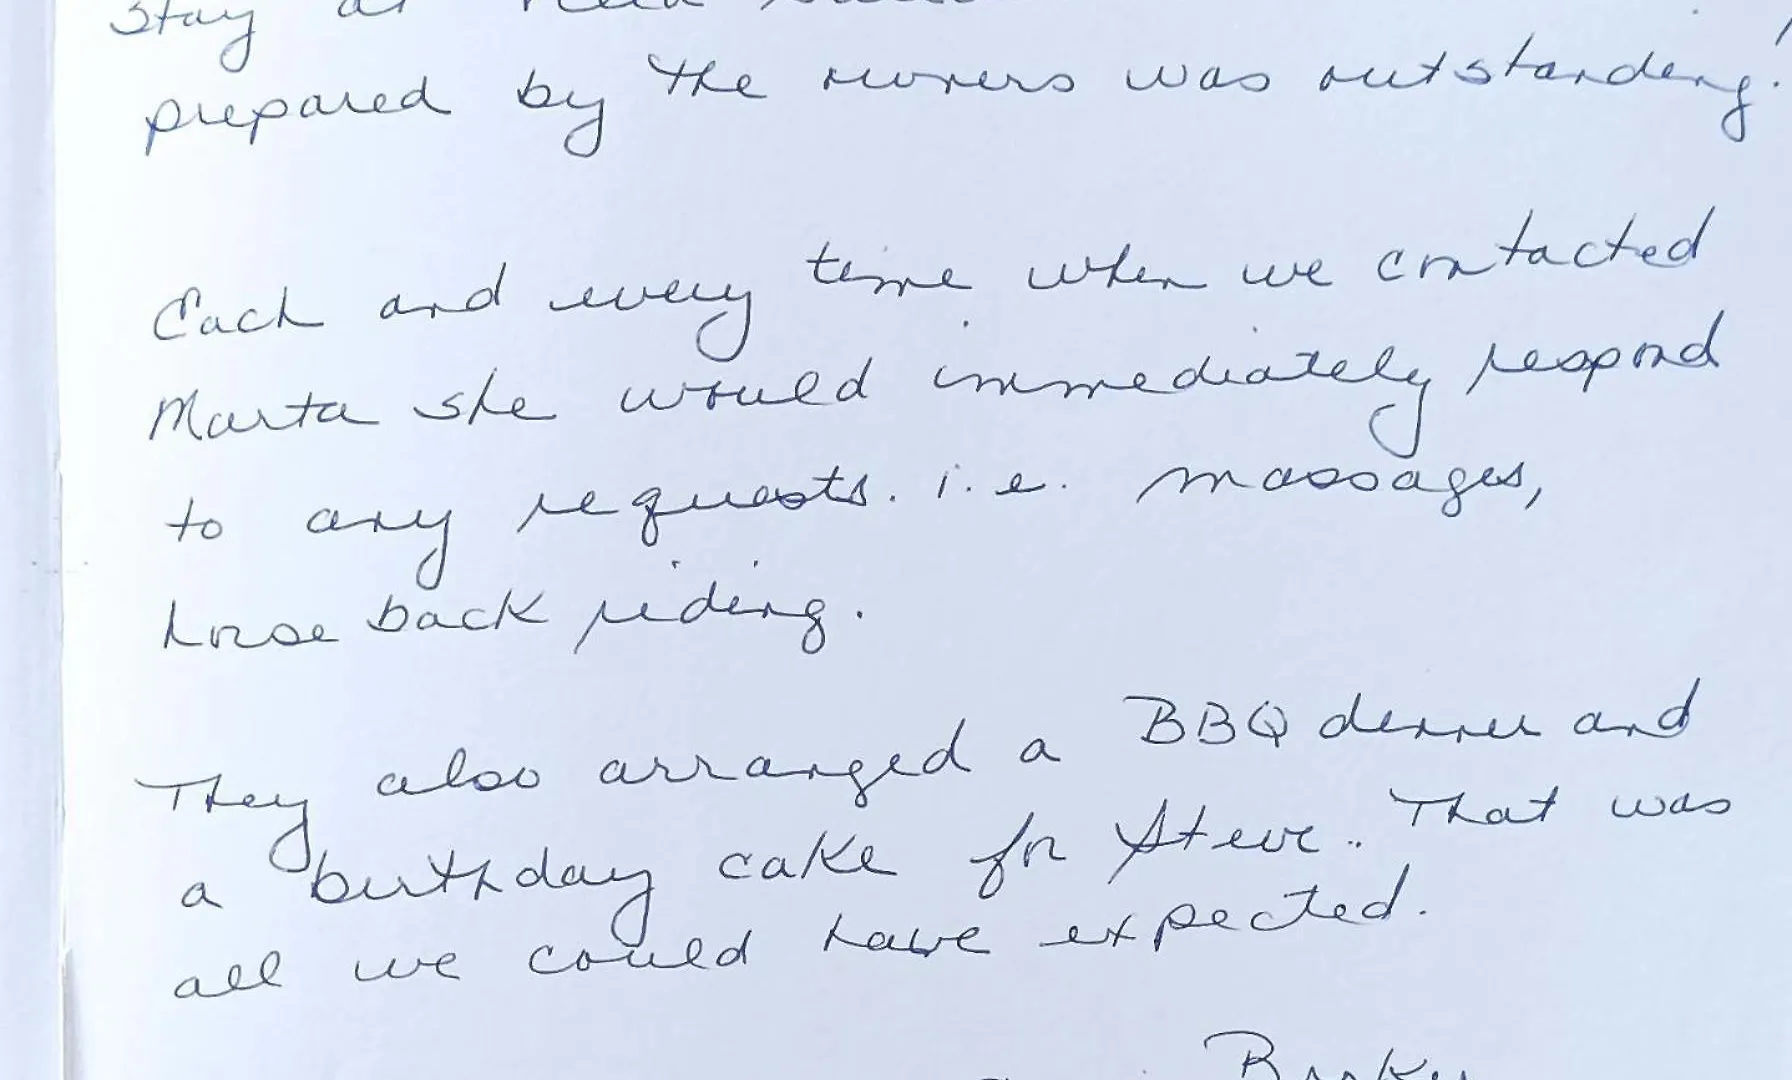 Stay at
prepared by the owners was outstanding!
Each and every time when we contacted
Marta she would immediately respond
to any requests. i.e. massages,
horse back riding.
They also arranged a BBQ dinner and
a birthday cake for Steve. That was
all we could have expected.